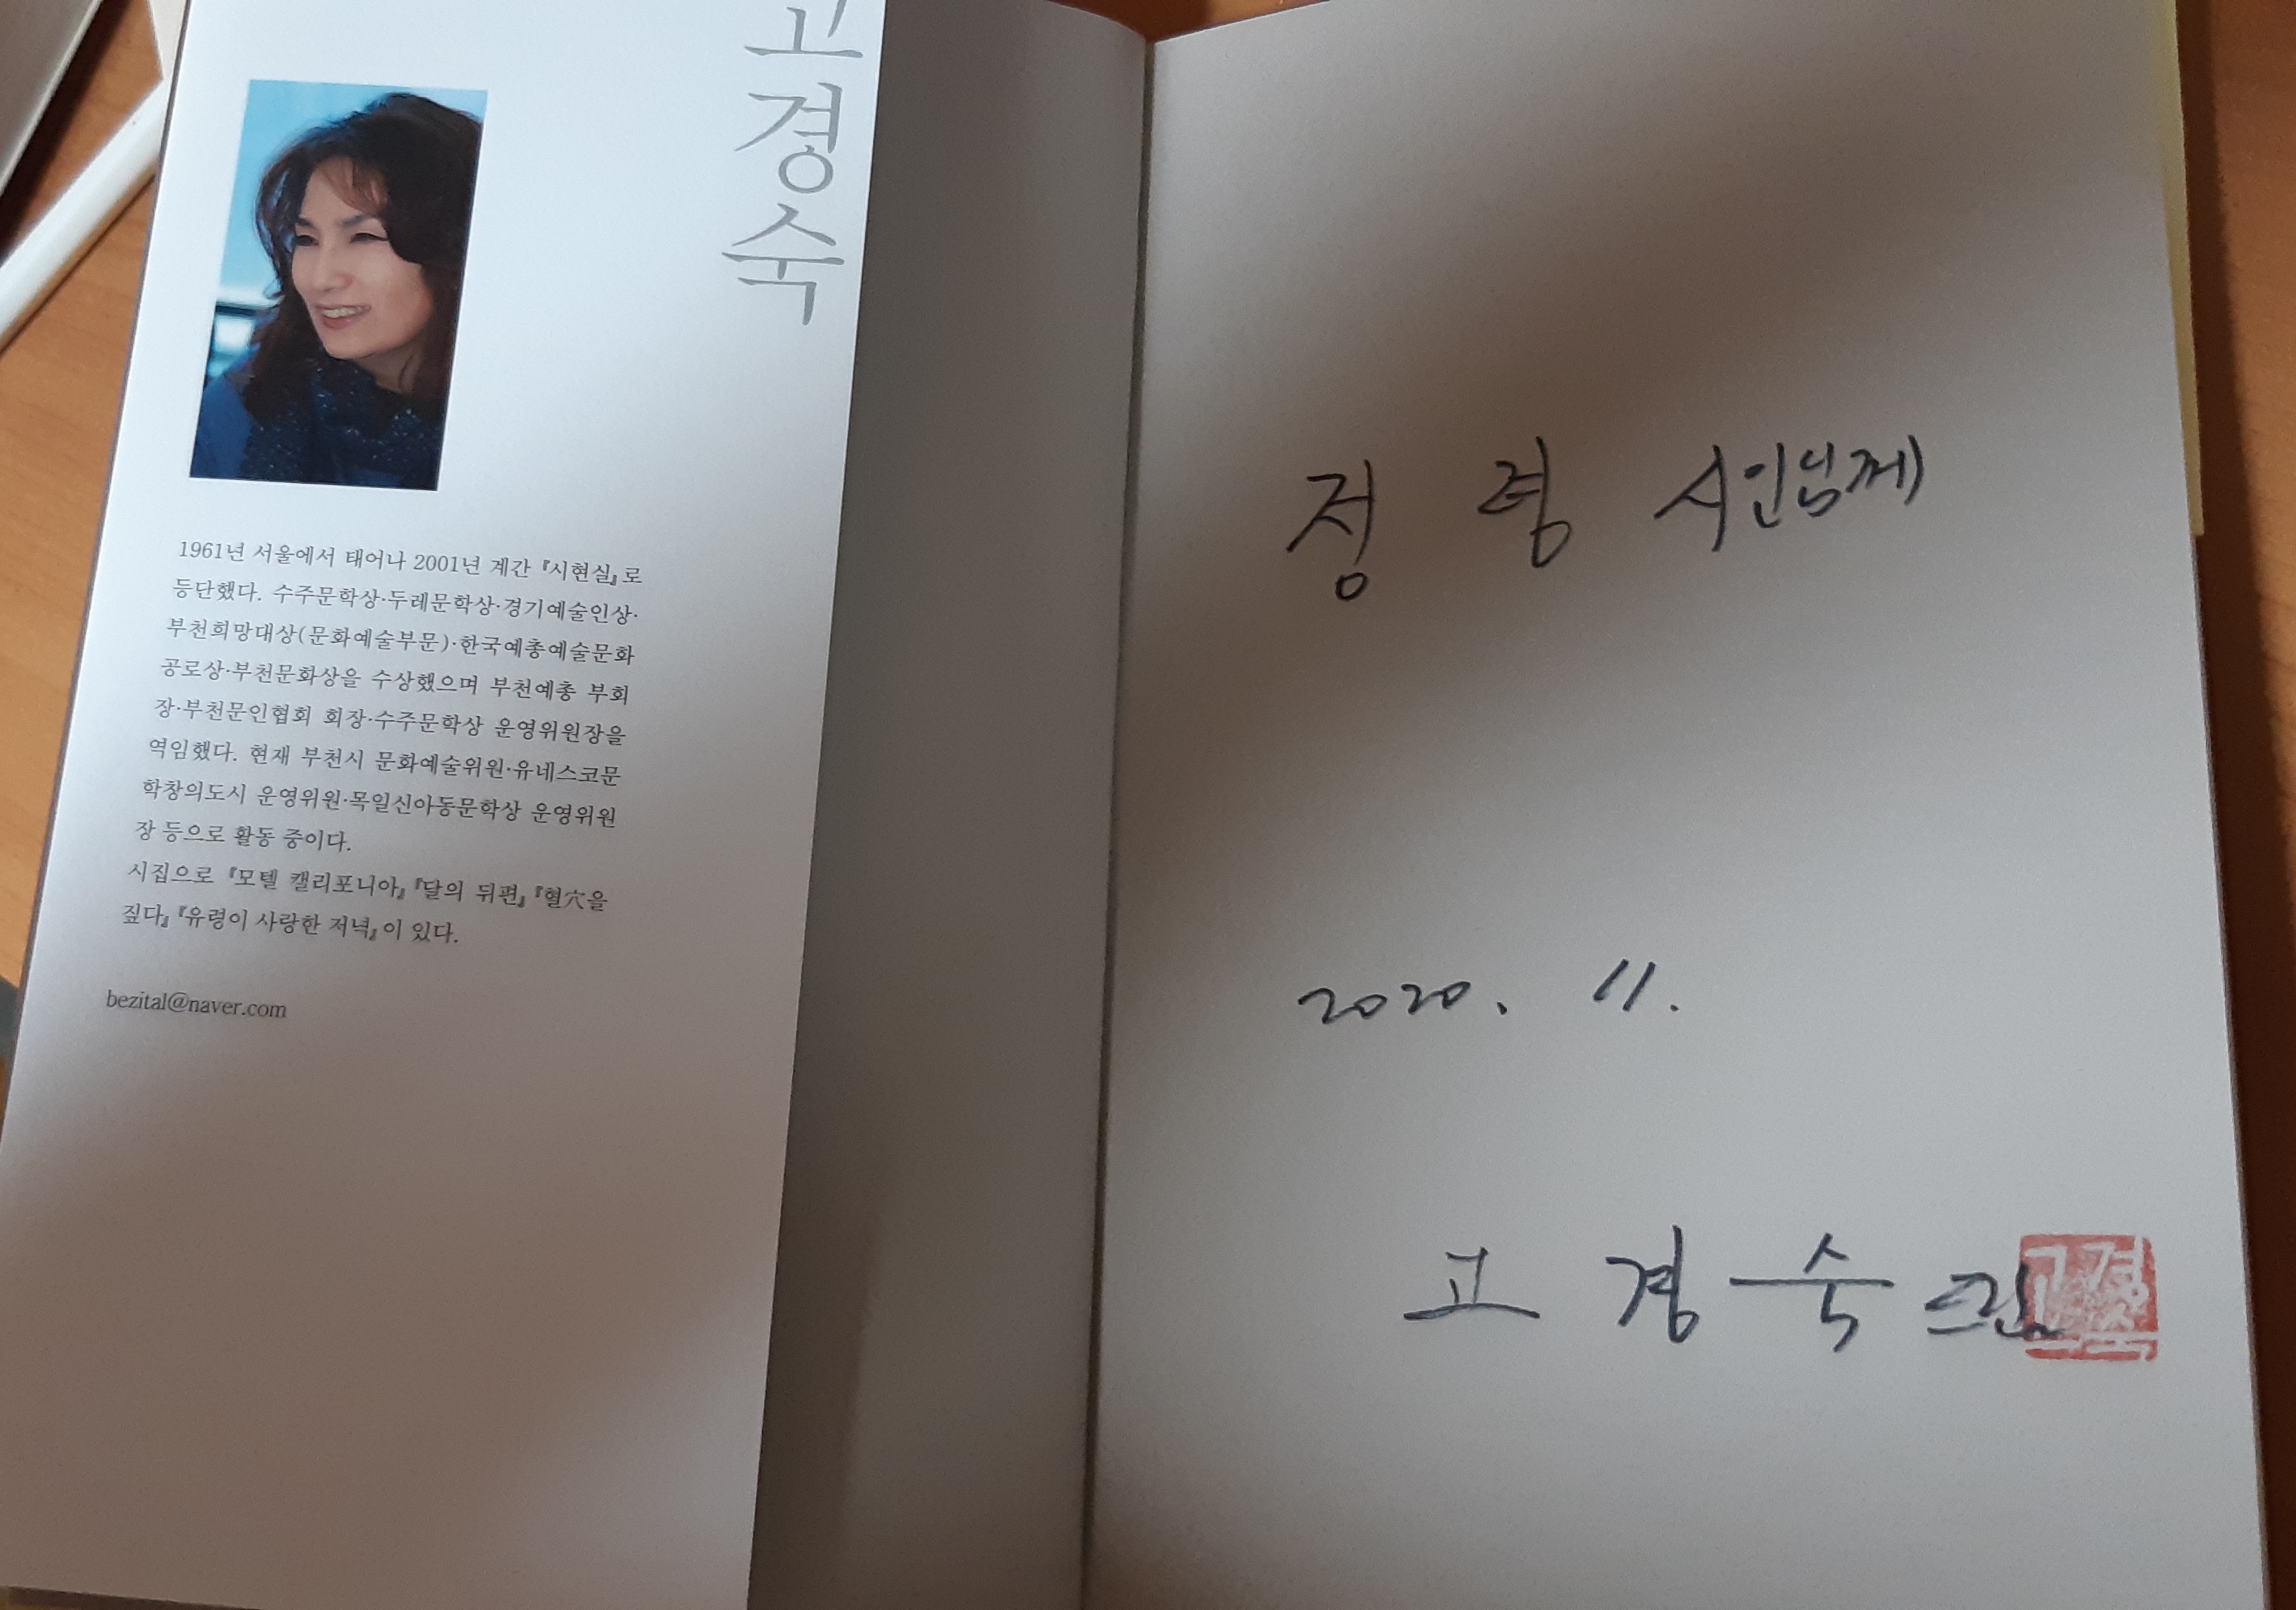 고
경
숙
1961년 서울에서 태어나 2001년 계간 『시현실』로
등단했다. 수주문학상·두레문학상·경기예술인상·
부천희망대상(문화예술부문)·한국예총예술문화
공로상·부천문화상을 수상했으며 부천예총 부회
장·부천문인협회 회장·수주문학상 운영위원장을
역임했다. 현재 부천시 문화예술위원·유네스코문
학창의도시 운영위원·목일신아동문학상 운영위원
장 등으로 활동 중이다.
시집으로 『모텔 캘리포니아』『달의 뒤편』『혈穴을
짚다』『유령이 사랑한 저녁』이 있다.
bezital@naver.com
정 령 시인님께
2020. 11.
고 경 숙 드림
고경숙